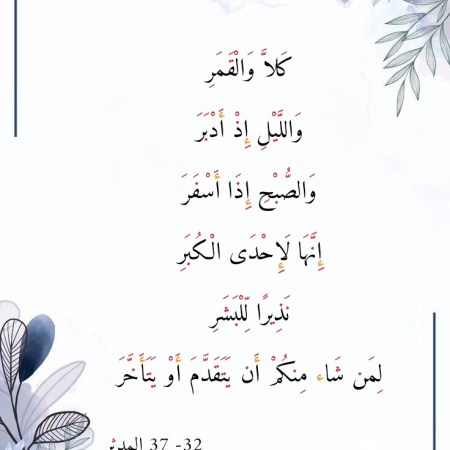 كَلاَّ وَالْقَمَرِ
وَاللَّيْلِ إِذْ أَدْبَرَ
وَالصُّبْحِ إِذَا أَسْفَرَ
إِنَّهَا لَإِحْدَى الْكُبَرِ
نَذِيرًا لِّلْبَشَرِ
لِمَن شَاء مِنكُمْ أَن يَتَقَدَّمَ أَوْ يَتَأَخَّرَ
32- 37 المدثر